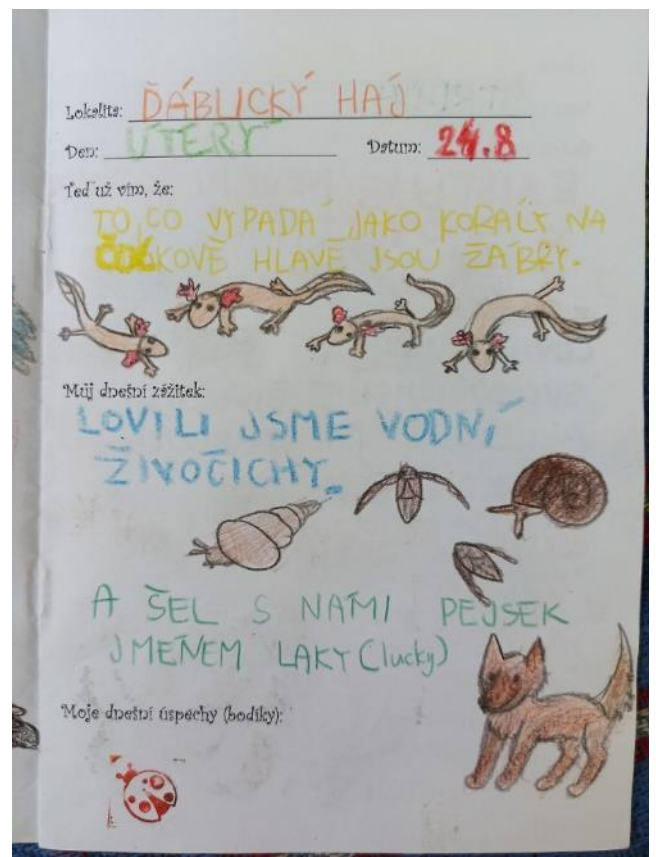 Lokalita: ĎÁBLICKÝ HÁJ
Den: ÚTERÝ Datum: 24.8
Teď už vím, že:
TO, CO VYPADÁ JAKO KORÁLY NA
ČOLKOVĚ HLAVĚ JSOU ŽÁBRY.
Můj dnešní zážitek:
LOVILI JSME VODNÍ
ŽIVOČICHY.
A ŠEL S NÁMI PEJSEK
JMÉNEM LAKY (lucky)
Moje dnešní úspěchy (bodíky):